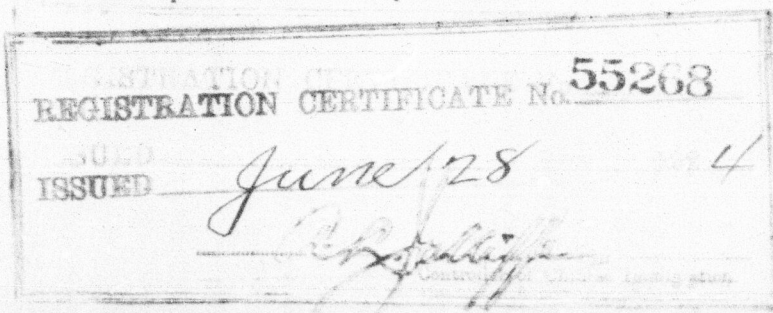 REGISTRATION CERTIFICATE No. 55268
ISSUED June 28 4
Controller of Chinese Immigration